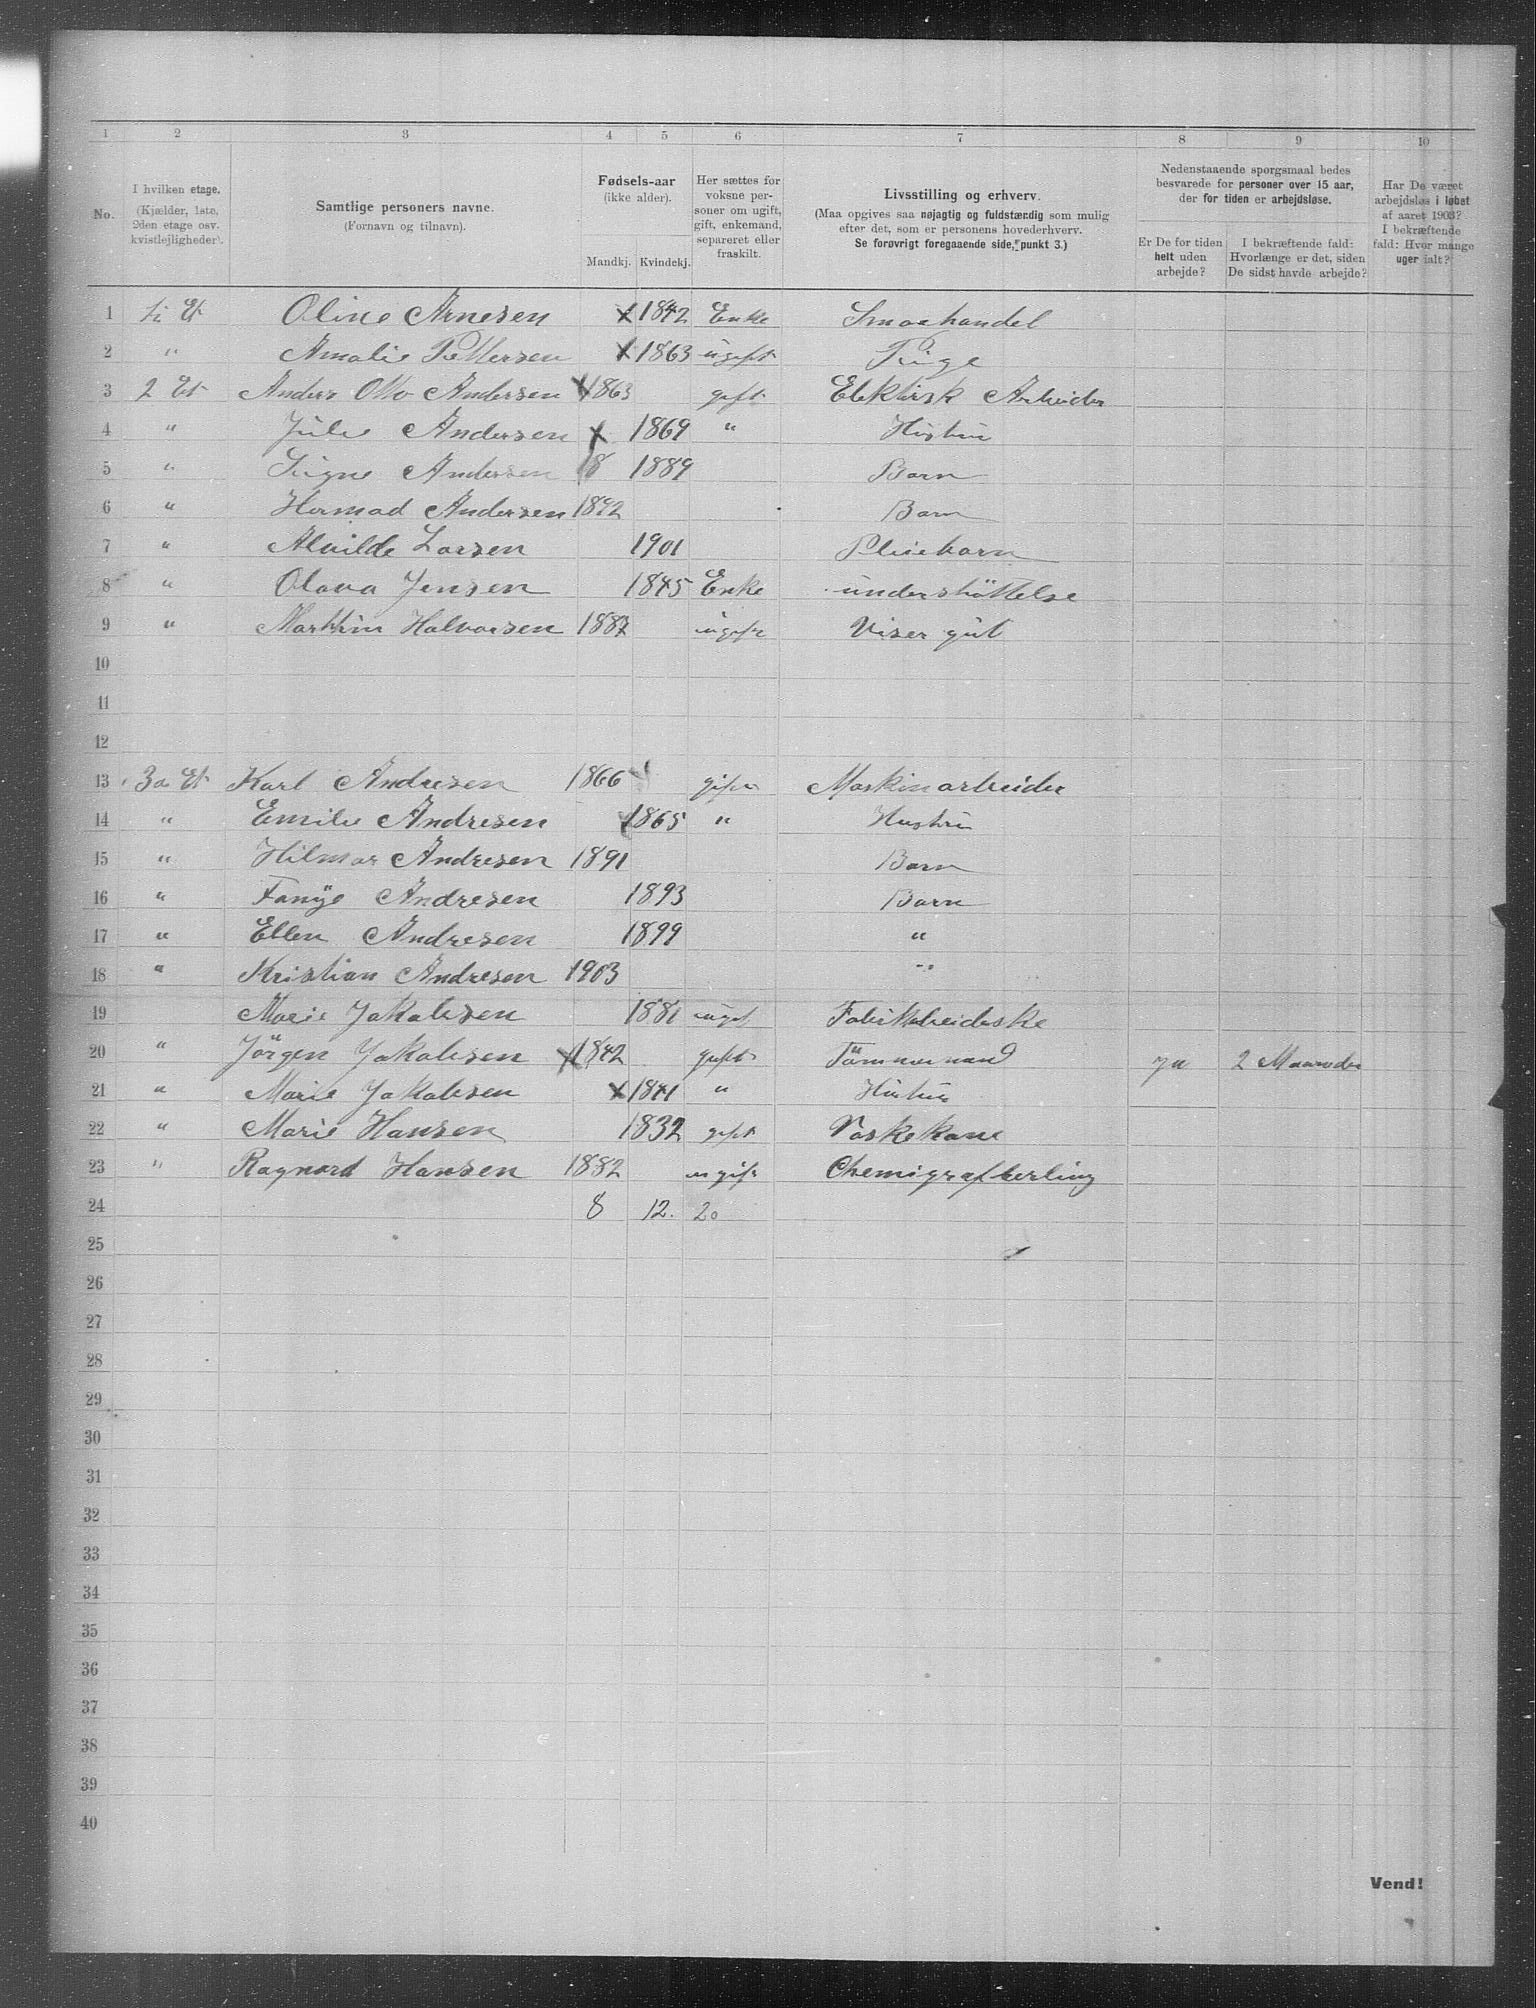 1 2 3 4 5 6 7 8 9 10
No.
I hvilken etage.
(Kjælder, 1ste,
2den etage osv.
kvistlejligheder).
Samtlige personers navne.
(Fornavn og tilnavn).
Fødsels-aar
(ikke alder).
Mandkj. Kvindekj.
Her sættes for
voksne per-
soner om ugift,
gift, enkemand,
separeret eller
fraskilt.
Livsstilling og erhverv.
(Maa opgives saa nøjagtig og fuldstændig som mulig
efter det, som er personens hovederhverv.
Se forøvrigt foregaaende side, punkt 3.)
Nedenstaaende spørgsmaal bedes
besvarede for personer over 15 aar,
der for tiden er arbejdsløse.
Er De for tiden
helt uden
arbejde?
I bekræftende fald:
Hvorlænge er det, siden
De sidst havde arbejde?
Har De været
arbejdsløs i løbet
af aaret 1903?
I bekræftende
fald: Hvor mange
uger ialt?
1 Et Oline Arnesen x 1842 Enke Smaahandel
2 " Amalie Pettersen x 1863 ugift Pige
3 2 Et Anders Otto Andersen x 1863 gift Elektrisk Arbeider
4 " Julie Andersen x 1869 " Hustru
5 " Signe Andersen 8 1889 Barn
6 " Hermod Andersen 1892 Barn
7 " Alvilde Larsen 1901 Pleiebarn
8 " Olava Jensen 1845 Enke understøttelse
9 " Marthin Halvorsen 1887 ugift Visergut
10
11
12
13 3a Et Karl Andresen 1866 gift Maskinarbeider
14 " Emilie Andresen 1865 " Hustru
15 " Hilmar Andresen 1891 Barn
16 " Fanye Andresen 1893 Barn
17 " Ellen Andresen 1899 "
18 " Kristian Andresen 1903 "
19 Marie Jakobsen 1881 ugift Fabrikarbeiderske
20 " Jörgen Jakobsen x 1842 gift Tömmermand ja 2 Maaneder
21 " Marie Jakobsen x 1841 " Hustru
22 " Marie Hansen 1832 gift Vaskekone
23 " Ragnard Hansen 1882 ugift Chemigraflærling
24 8 12. 20
25
26
27
28
29
30
31
32
33
34
35
36
37
38
39
40
Vend!